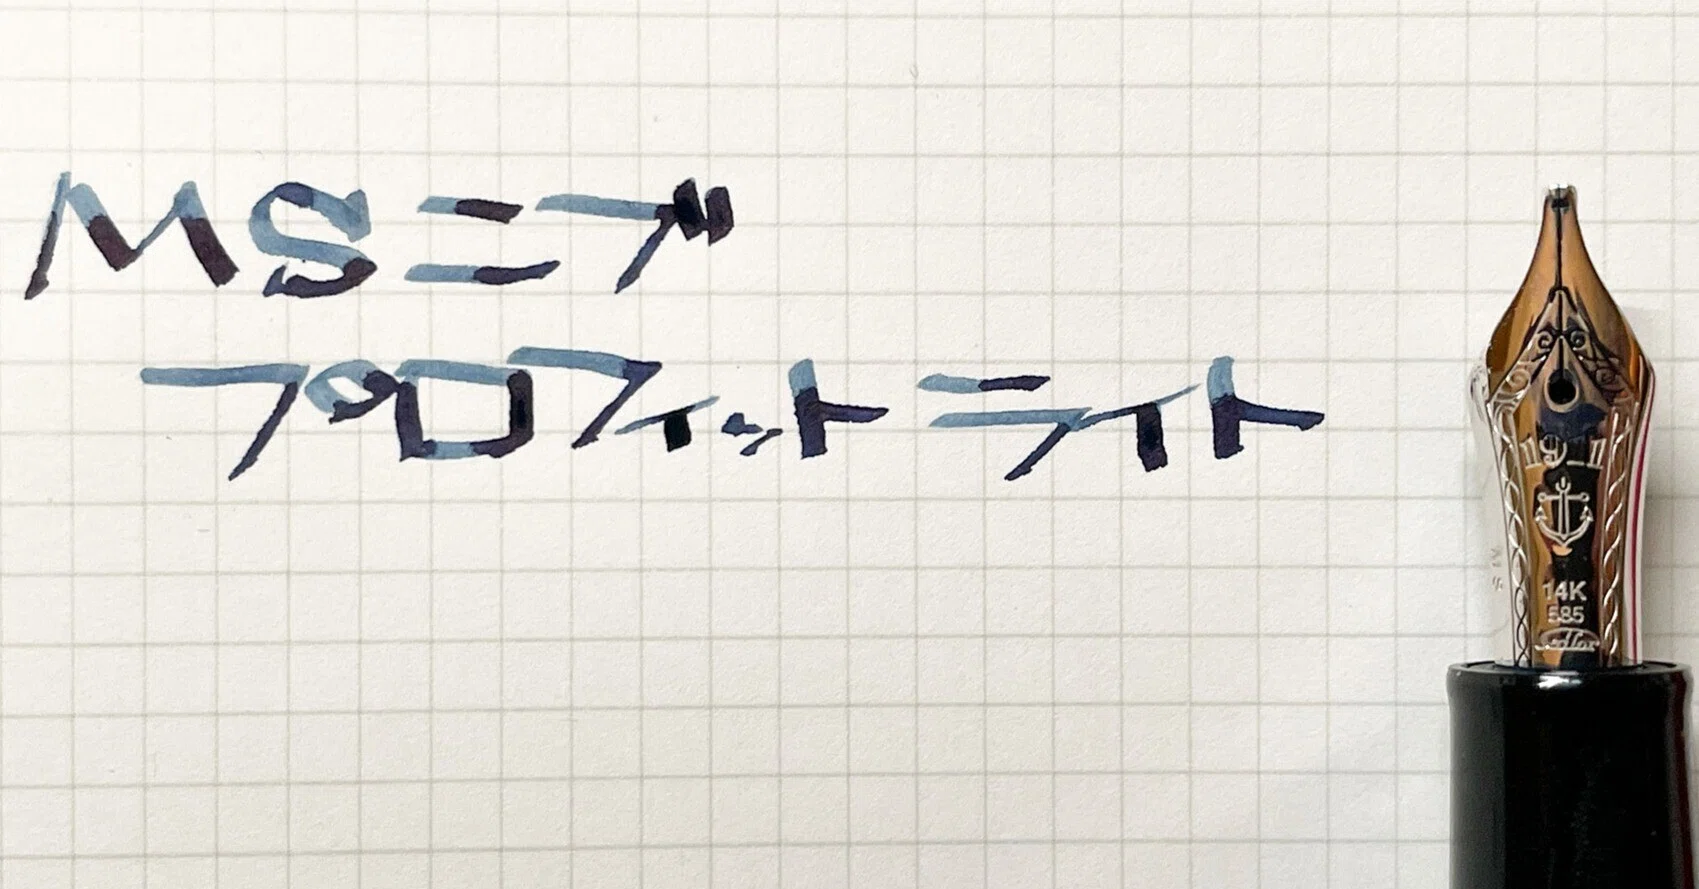 MSニブ
プロフィットライト
19_1
14K
585
Sailor
MS